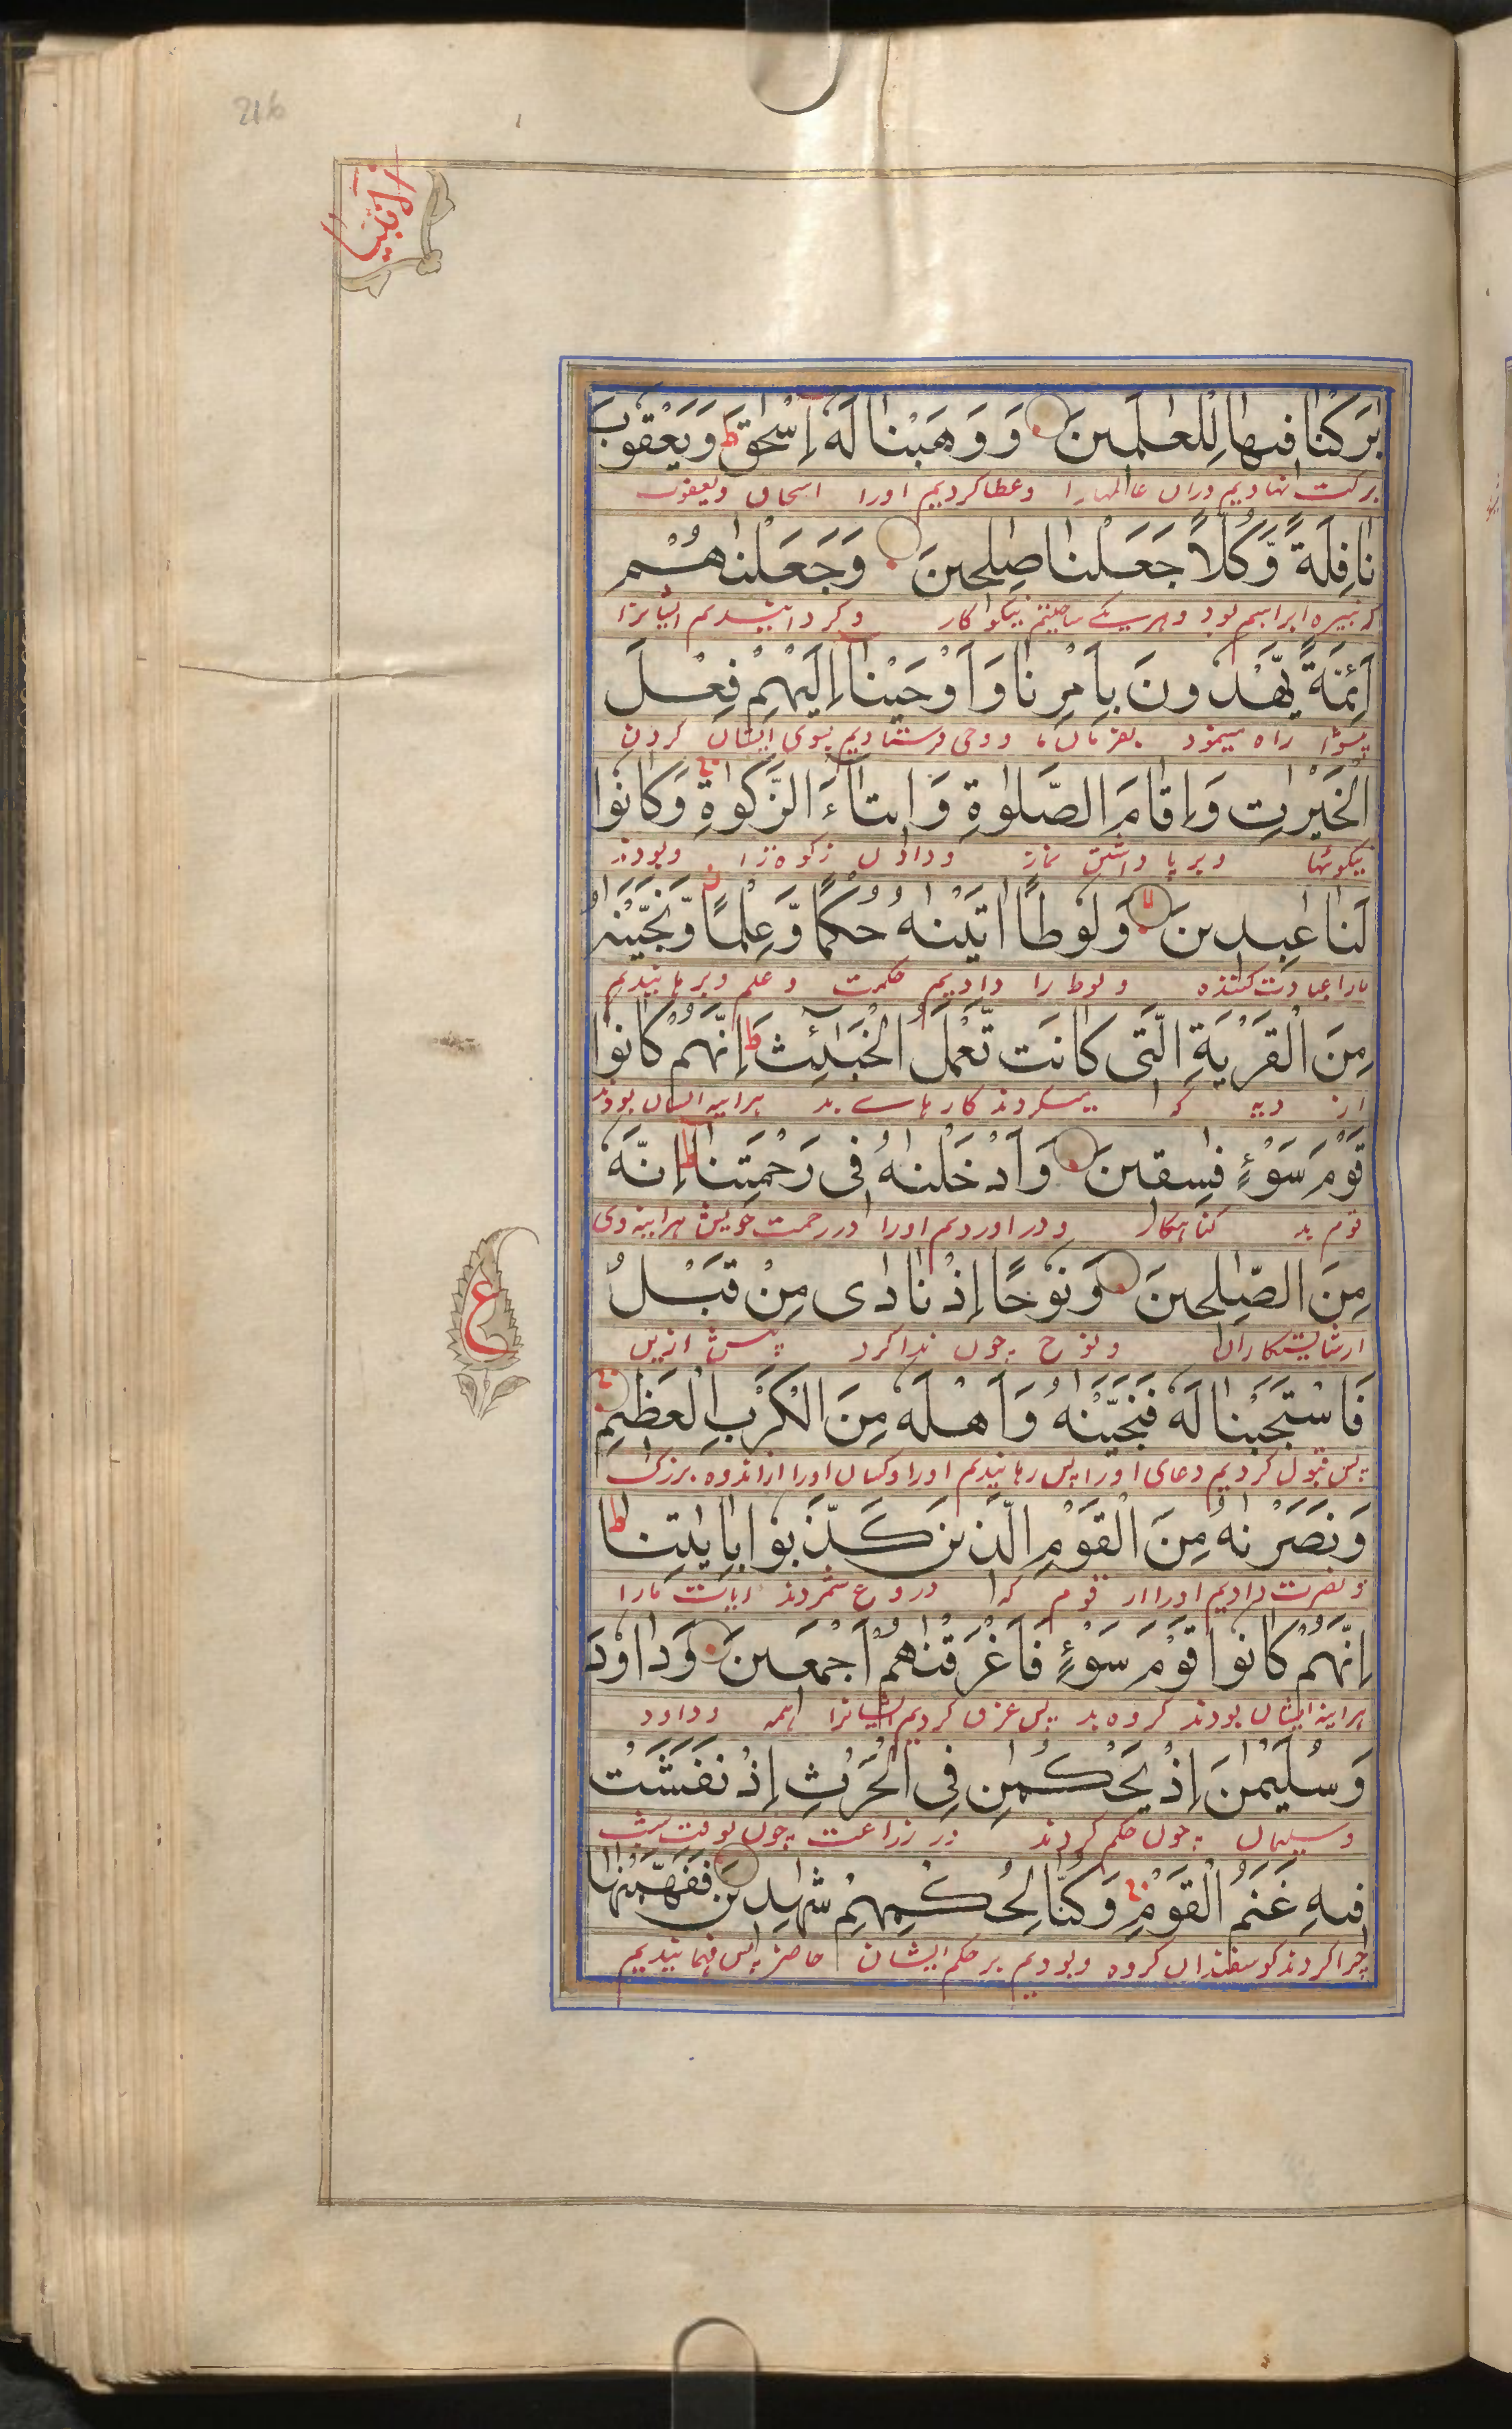 216
الانبیا
بٰرَكْنَا فِیهَا لِلْعٰلَمِینَ وَوَهَبْنَا لَهٗۤ اِسْحٰقَ ط وَیَعْقُوبَ
برکت نهادیم دران عالمهارا وعطا کردیم اورا اسحاق ویعقوب
نَافِلَةً وَّكُلًّا جَعَلْنَا صٰلِحِینَ وَجَعَلْنٰهُمْ
که نبیره ابراهیم بود وهر یکے ساختیم نیکوکار وکردانیدیم ایشانرا
اَئِمَّةً یَّهْدُونَ بِاَمْرِنَا وَاَوْحَیْنَاۤ اِلَیْهِمْ فِعْلَ
پیشوا راه مینمود بفرمان ما ووحی فرستادیم بسوی ایشان کردن
الْخَیْرٰتِ وَاِقَامَ الصَّلٰوةِ وَاِیتَآءَ الزَّكٰوةِ وَكَانُوا
نیکوئیها وبرپا داشتن نماز ودادن زکوه را وبودند
لَنَا عٰبِدِینَ وَلُوطًا اٰتَیْنٰهُ حُكْمًا وَّعِلْمًا وَّنَجَّیْنٰهُ
مارا عبادت کننده ولوط را دادیم حکمت وعلم وبرهانیدیم
مِنَ الْقَرْیَةِ الَّتِی كَانَت تَّعْمَلُ الْخَبٰٓئِثَ ط اِنَّهُمْ كَانُوا
از دیه که میکردند کارهاے بد هراینه ایشان بودند
قَوْمَ سَوْءٍ فٰسِقِینَ وَاَدْخَلْنٰهُ فِی رَحْمَتِنَا ط اِنَّهٗ
قوم بد کناهکار ودر اوردیم اورا در رحمت خویش هراینه وی
مِنَ الصّٰلِحِینَ وَنُوحًا اِذْ نَادٰی مِنْ قَبْلُ
ازشایستکاران ونوح چون ندا کرد پیش ازین
ع
فَاسْتَجَبْنَا لَهٗ فَنَجَّیْنٰهُ وَاَهْلَهٗ مِنَ الْكَرْبِ الْعَظِیمِ
پس قبول کردیم دعای اورا پس رهانیدیم اورا وکسان اورا از اندوه بزرک
وَنَصَرْنٰهُ مِنَ الْقَوْمِ الَّذِینَ كَذَّبُوا بِاٰیٰتِنَا ط
ونصرت دادیم اورا از قوم که دروغ شمردند ایات مارا
اِنَّهُمْ كَانُوا قَوْمَ سَوْءٍ فَاَغْرَقْنٰهُمْ اَجْمَعِینَ وَدَاوٗدَ
هراینه ایشان بودند کروه بد پس غرق کردیم ایشانرا همه وداود
وَسُلَیْمٰنَ اِذْ یَحْكُمٰنِ فِی الْحَرْثِ اِذْ نَفَشَتْ
وسلیمان چون حکم کردند در زراعت چون بوقت شب
فِیهِ غَنَمُ الْقَوْمِ وَكُنَّا لِحُكْمِهِمْ شٰهِدِینَ فَفَهَّمْنٰهَا
چرا کردند کوسفندان کروه وبودیم بر حکم ایشان حاضر پس فهمانیدیم